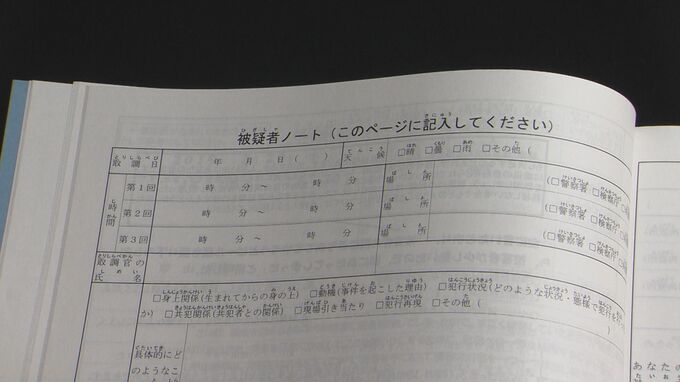 被疑者ノート（このページに記入してください）
取調日 年 月 日（ ） 天候 □晴 □曇 □雨 □その他（
時間 第1回 時 分 ～ 時 分 場所 （□警察署 □検察庁
第2回 時 分 ～ 時 分 場所 （□警察署 □検察庁
第3回 時 分 ～ 時 分 場所 （□警察署 □検察庁
取調官の
氏名
□身上関係（生まれてからの身の上） □動機（事件を起こした理由） □犯行状況（どのような状況・態様で犯行を行った
か） □共犯関係（共犯者との関係） □現場引き当たり □犯行再現 □その他（
具体的にど
のようなこ
あなたの